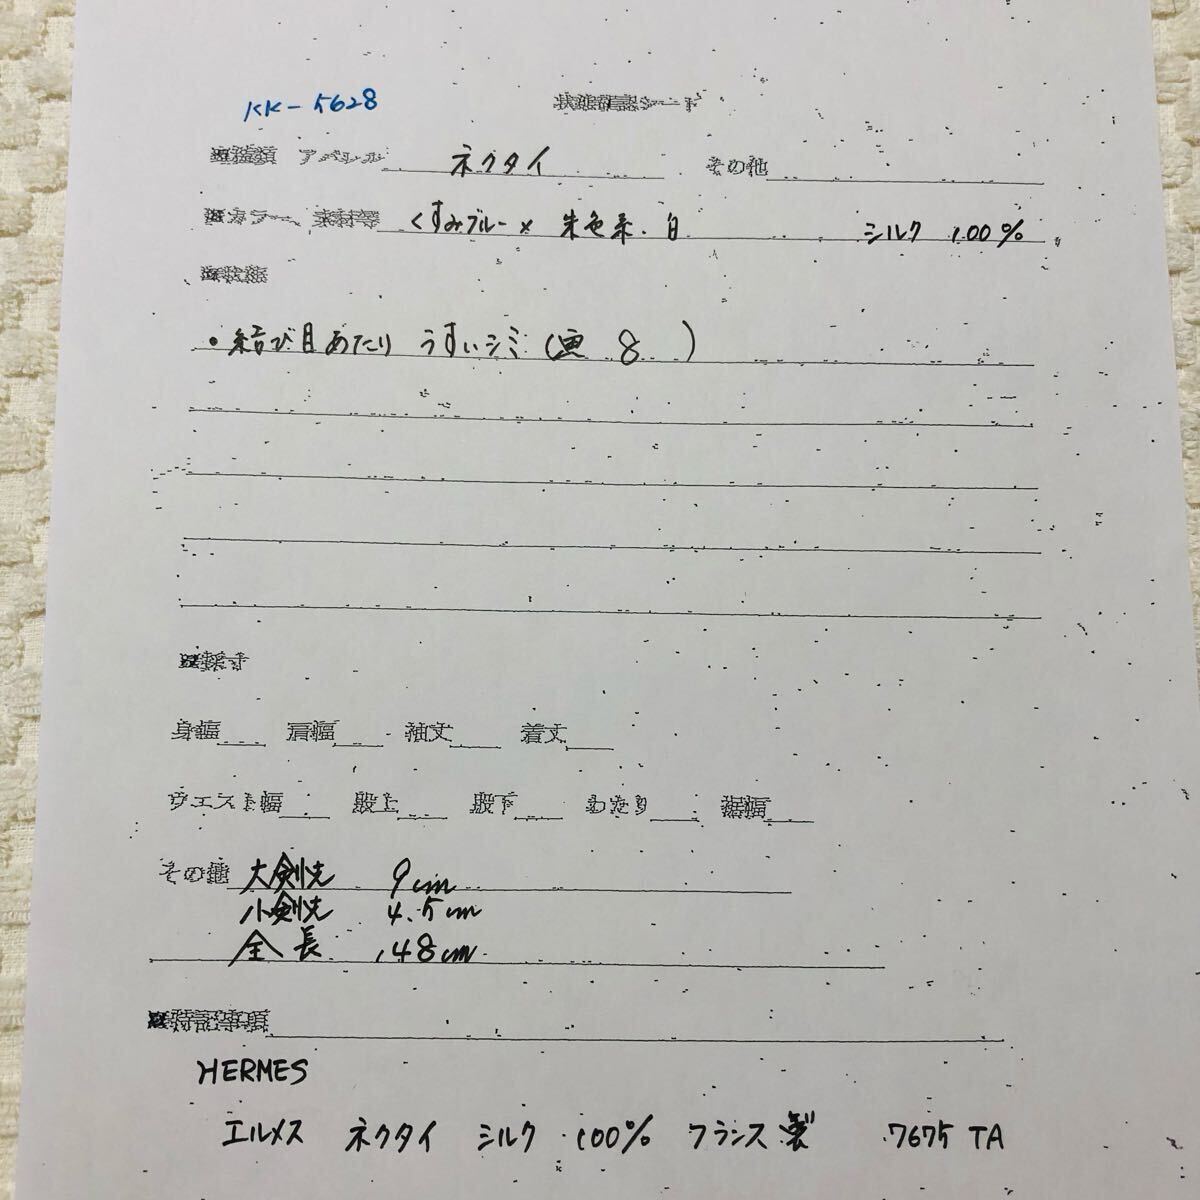 KK-5628
状態確認シート
※種類 アパレル ネクタイ その他
※カラー、素材等 くすみブルー × 朱色系・白 シルク 100%
※状態
・結び目あたり うすいシミ (画 8 )
※採寸
身幅 肩幅 袖丈 着丈
ウエスト幅 股上 股下 わたり 裾幅
その他 大剣先 9cm
小剣先 4.5cm
全長 148cm
※特記事項
HERMES
エルメス ネクタイ シルク 100% フランス製 7675 TA